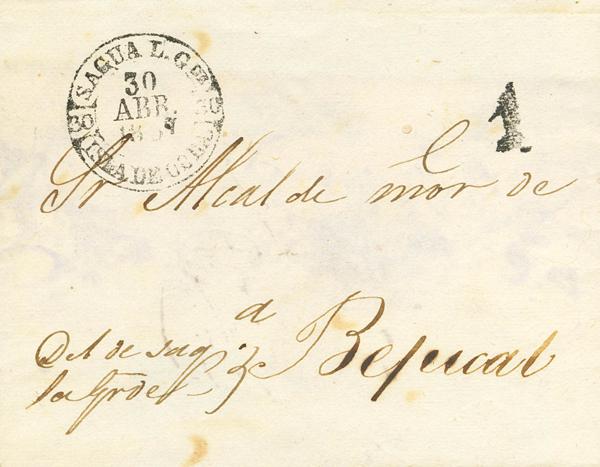 SAGUA L. GDE
30
ABR.
ISLA DE CUBA
1
Sr Alcalde mor de
a
Bejucal
Del de Sag
la Grde